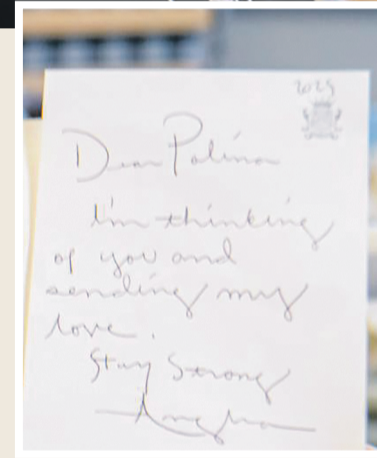 2025
Dear Polina
I'm thinking
of you and
sending my
love.
Stay Strong